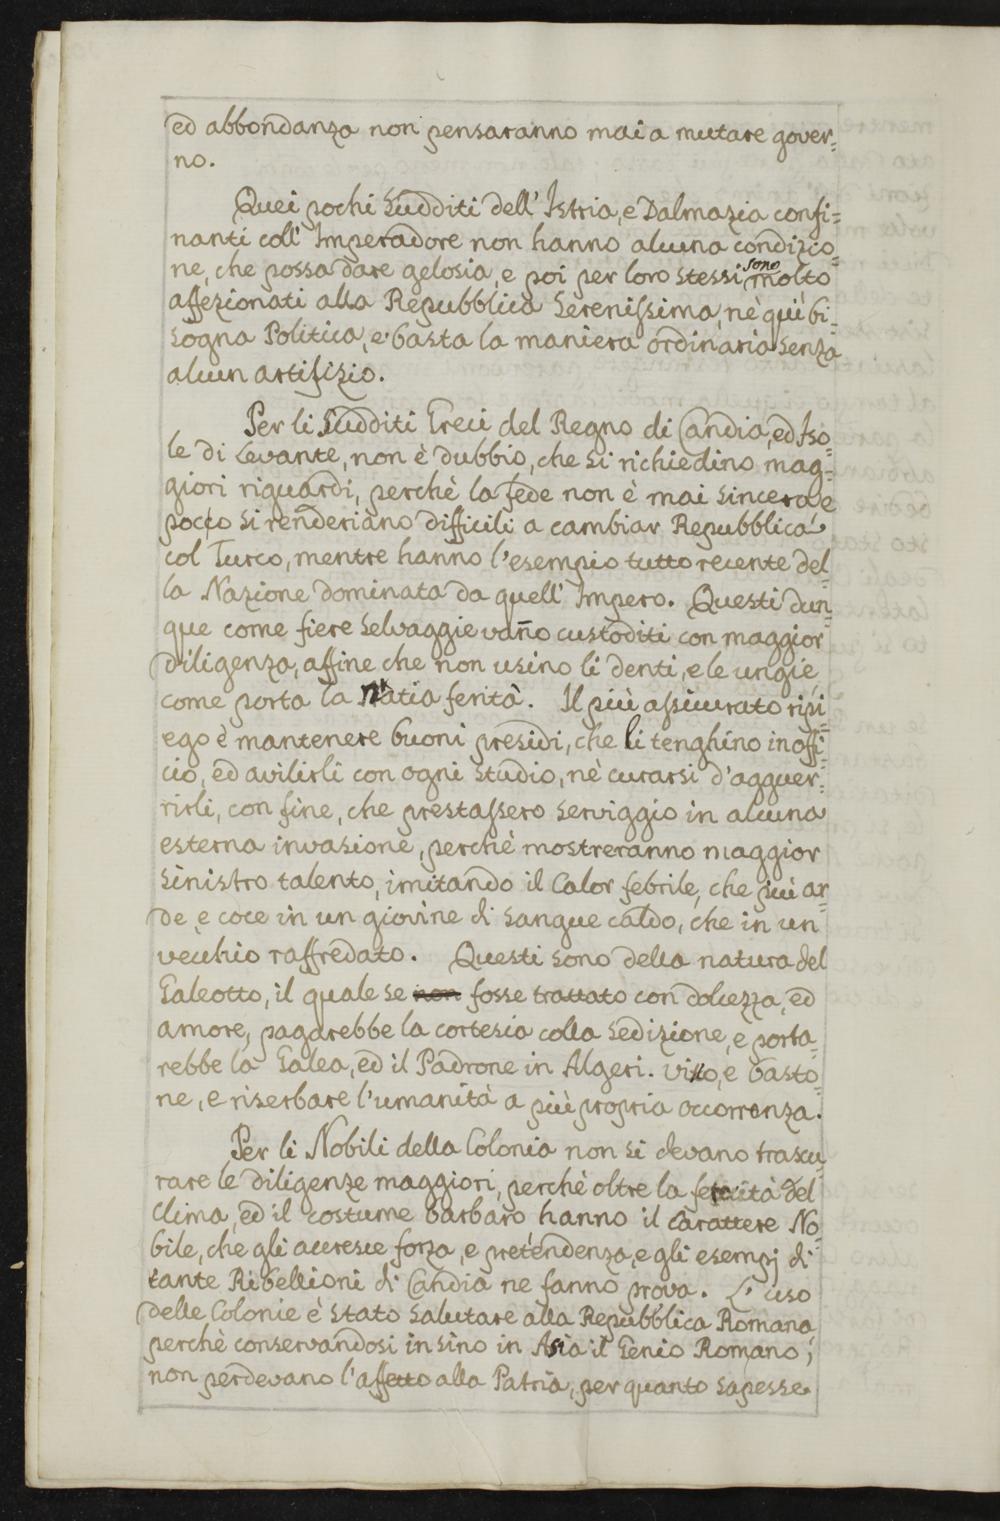 ed abbondanza non pensaranno mai a mutare gover=
no.
Quei pochi Sudditi dell' Istria, e Dalmazia confi=
nanti coll' Imperadore non hanno alcuna condizio=
ne, che possa dare gelosia, e poi per loro stessi sono molto
affezionati alla Repubblica Serenissima, nè quì bi=
sogna Politica, e basta la maniera ordinaria senza
alcun artifizio.
Per li Sudditi Greci del Regno di Candia, ed Iso=
le di Levante, non è dubbio, che si richiedino mag=
giori riguardi, perchè la fede non è mai sincera, e
pocço si renderiano difficili a cambiar Repubblica
col Turco, mentre hanno l'esempio tutto recente del=
la Nazione dominata da quell' Impero. Questi dun=
que come fiere selvaggie vaño custoditi con maggior
diligenza, affine che non usino li denti, e le ungie
come porta la natia ferità. Il più assicurato ripi=
ego è mantenere buoni presidi, che li tenghino in offi=
cio, ed avilirli con ogni studio, nè curarsi d'agguer=
rirli, con fine, che prestassero serviggio in alcuna
esterna invasione, perchè mostreranno maggior
sinistro talento, imitando il Calor febrile, che più ar=
de, e coce in un giovine di sangue caldo, che in un
vecchio raffredato. Questi sono della natura del
Galeotto, il quale se non fosse trattato con dolcezza, ed
amore, pagarebbe la cortesia colla Sedizione, e porta=
rebbe la Galea, ed il Padrone in Algeri. Vitto, e basto=
ne, e riserbare l'umanità a più propria occorrenza.
Per li Nobili della Colonia non si devano trascu=
rare le diligenze maggiori, perchè oltre la ferocità del
Clima, ed il costume barbaro hanno il Carattere No=
bile, che gli accresce forza, e pretendenza, e gli esempj di
tante Ribellioni di Candia ne fanno prova. L' uso
delle Colonie è stato salutare alla Repubblica Romana,
perchè conservandosi insino in Asia il Genio Romano;
non perdevano l'affetto alla Patria, per quanto sapesse